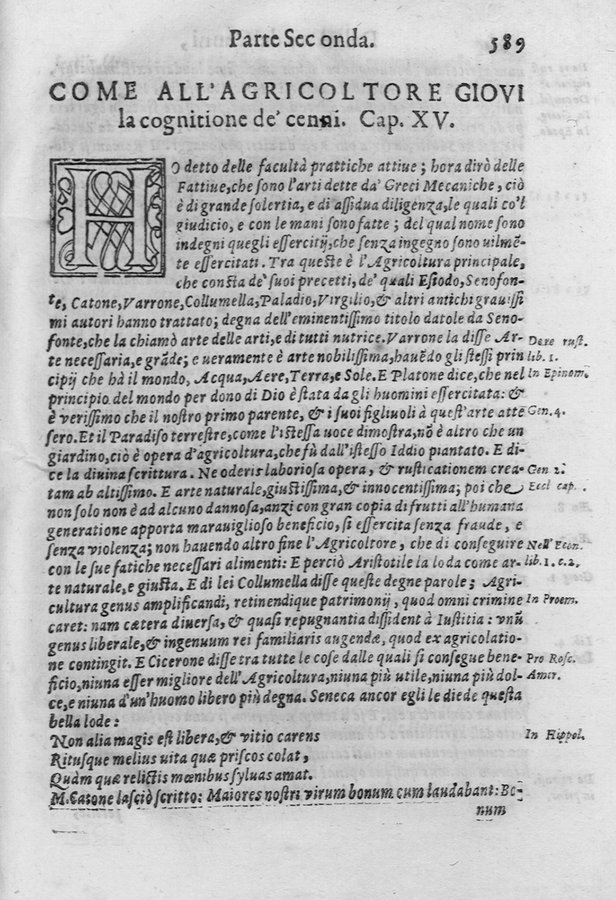 Parte Sec onda. 589
COME ALL'AGRICOLTORE GIOVI
la cognitione de' cenni. Cap. XV.
HO detto delle facultà prattiche attiue; hora dirò delle
Fattiue, che sono l'arti dette da' Greci Mecaniche, ciò
è di grande solertia, e di assidua diligenza, le quali co'l
giudicio, e con le mani sono fatte; del qual nome sono
indegni quegli essercitij, che senza ingegno sono uilmẽ-
te essercitati. Tra queste è l'Agricoltura principale,
che consta de' suoi precetti, de' quali Esiodo, Senofon-
te, Catone, Varrone, Collumella, Paladio, Virgilio, & altri antichi grauissi
mi autori hanno trattato; degna dell'eminentissimo titolo datole da Seno-
fonte, che la chiamò arte delle arti, e di tutti nutrice. Varrone la disse Ar- De re rust.
te necessaria, e grãde; e ueramente è arte nobilissima, hauẽdo gli stessi prin lib. 1.
cipij che hà il mondo, Acqua, Aere, Terra, e Sole. E Platone dice, che nel In Epinom.
principio del mondo per dono di Dio è stata da gli huomini essercitata: &
è verissimo che il nostro primo parente, & i suoi figliuoli à quest'arte atte Gen. 4.
sero. Et il Paradiso terrestre, come l'istessa uoce dimostra, nõ è altro che un
giardino, ciò è opera d'agricoltura, che fù dall'istesso Iddio piantato. E di-
ce la diuina scrittura. Ne oderis laboriosa opera, & rusticationem crea- Gen 2.
tam ab altissimo. E arte naturale, giustissima, & innocentissima; poi che Eccl cap.
non solo non è ad alcuno dannosa, anzi con gran copia di frutti all'humana
generatione apporta marauiglioso beneficio, si essercita senza fraude, e
senza violenza; non hauendo altro fine l'Agricoltore, che di conseguire Nell' Econ.
con le sue fatiche necessari alimenti: E perciò Aristotile la loda come ar- lib. 1. c. 2.
te naturale, e giusta. E di lei Collumella disse queste degne parole; Agri-
cultura genus amplificandi, retinendique patrimonij, quod omni crimine In Proem.
caret: nam cætera diuersa, & quasi repugnantia dissident à Iustitia: vnũ
genus liberale, & ingenuum rei familiaris augendæ, quod ex agricolatio-
ne contingit. E Cicerone disse tra tutte le cose dalle quali si consegue bene- Pro Rosc.
ficio, niuna esser migliore dell'Agricoltura, niuna più utile, niuna più dol- Amir.
ce, e niuna d'un'huomo libero più degna. Seneca ancor egli le diede questa
bella lode:
Non alia magis est libera, & vitio carens In Hippol.
Ritusque melius uita quæ priscos colat,
Quàm quæ relictis mœnibus syluas amat.
M. Catone lasciò scritto: Maiores nostri virum bonum cum laudabant: Bo-
num